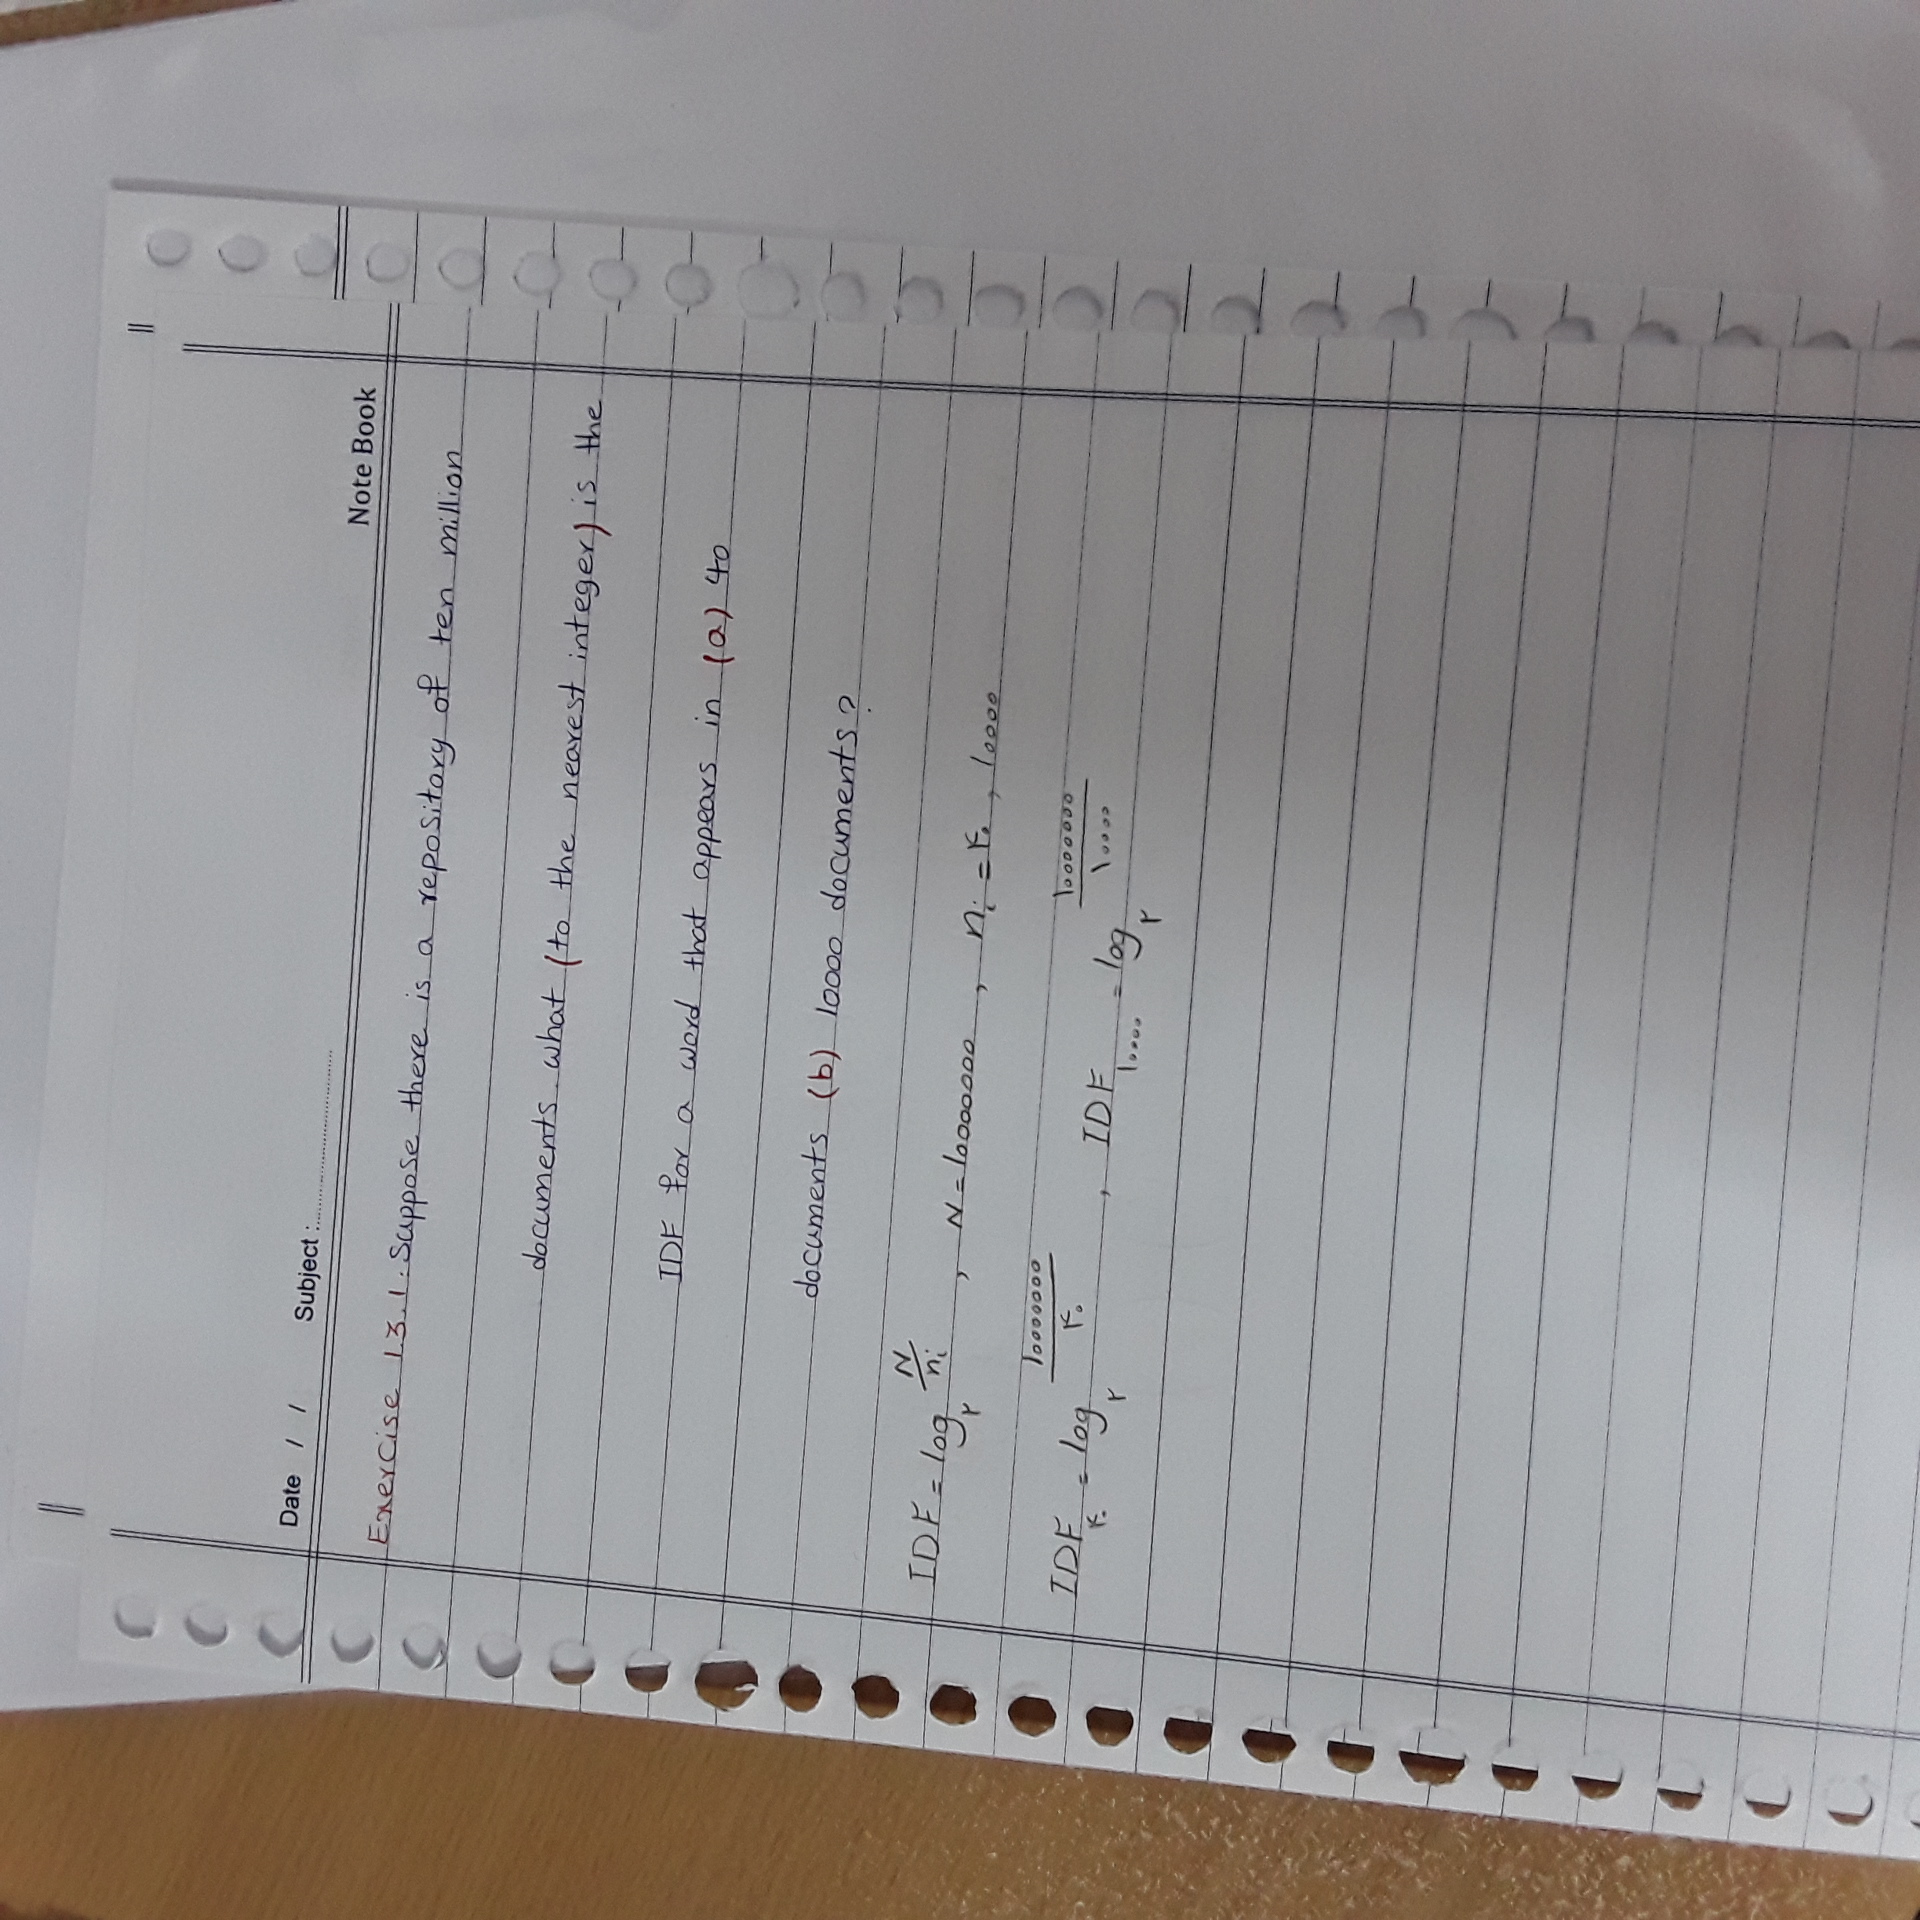 Date / / Subject :
Note Book
Exercise 1.3.1. Suppose there is a repository of ten million
documents. what (to the nearest integer) is the
IDF for a word that appears in (a) 40
documents (b) 10000 documents?
IDF = log₂ N/nᵢ , N = 10000000 , nᵢ = ۴۰ , 10000
IDF۴۰ = log۲ 10000000/۴۰ , IDF10000 = log۲ 10000000/10000